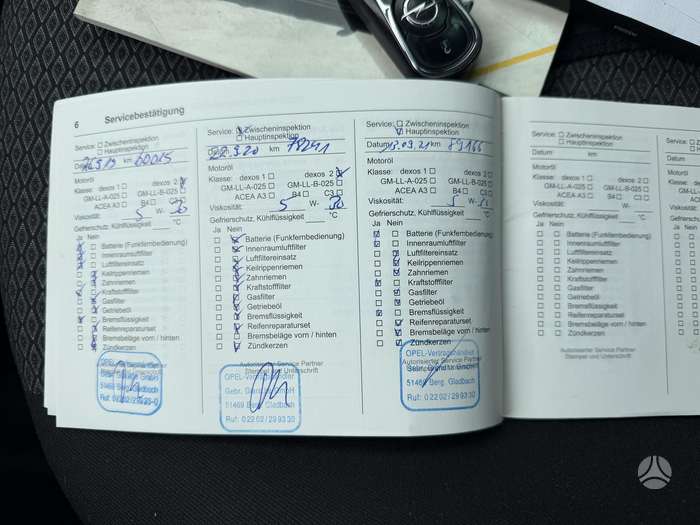 6 Servicebestätigung
Service: Zwischeninspektion
Hauptinspektion
Datum 60015
km
Motoröl
Klasse: dexos 1 dexos 2
GM-LL-A-025 GM-LL-B-025
ACEA A3 B4 C3
Viskosität: 5 W- 30
Gefrierschutz, Kühlflüssigkeit °C
Ja Nein
Batterie (Funkfernbedienung)
Innenraumluftfilter
Luftfiltereinsatz
Keilrippenriemen
Zahnriemen
Kraftstofffilter
Gasfilter
Getriebeöl
Bremsflüssigkeit
Reifenreparaturset
Bremsbeläge vorn / hinten
Zündkerzen
OPEL-Vertragshändler
51469 Berg. Gladbach
Service: Zwischeninspektion
Hauptinspektion
Datum km 78241
Motoröl
Klasse: dexos 1 dexos 2
GM-LL-A-025 GM-LL-B-025
ACEA A3 B4 C3
Viskosität: 5 W- 30
Gefrierschutz, Kühlflüssigkeit °C
Ja Nein
Batterie (Funkfernbedienung)
Innenraumluftfilter
Luftfiltereinsatz
Keilrippenriemen
Zahnriemen
Kraftstofffilter
Gasfilter
Getriebeöl
Bremsflüssigkeit
Reifenreparaturset
Bremsbeläge vorn / hinten
Zündkerzen
Autorisierter Service Partner
Stempel und Unterschrift
OPEL-Vertragshändler
51469 Berg. Gladbach
Ruf: 0 22 02 / 29 93 30
Service: Zwischeninspektion
Hauptinspektion
Datum 03.21 km 89166
Motoröl
Klasse: dexos 1 dexos 2
GM-LL-A-025 GM-LL-B-025
ACEA A3 B4 C3
Viskosität: 5 W-
Gefrierschutz, Kühlflüssigkeit °C
Ja Nein
Batterie (Funkfernbedienung)
Innenraumluftfilter
Luftfiltereinsatz
Keilrippenriemen
Zahnriemen
Kraftstofffilter
Gasfilter
Getriebeöl
Bremsflüssigkeit
Reifenreparaturset
Bremsbeläge vorn / hinten
Zündkerzen
Autorisierter Service Partner
OPEL-Vertragshändler
51469 Berg. Gladbach
Ruf: 0 22 02 / 29 93 30
Service: Zwischeninspektion
Hauptinspektion
Datum km
Motoröl
Klasse: dexos 1 dexos 2
GM-LL-A-025 GM-LL-B-025
ACEA A3 B4 C3
Viskosität: W-
Gefrierschutz, Kühlflüssigkeit °C
Ja Nein
Batterie (Funkfernbedienung)
Innenraumluftfilter
Luftfiltereinsatz
Keilrippenriemen
Zahnriemen
Kraftstofffilter
Gasfilter
Getriebeöl
Bremsflüssigkeit
Reifenreparaturset
Bremsbeläge vorn / hinten
Zündkerzen
Autorisierter Service Partner
Stempel und Unterschrift